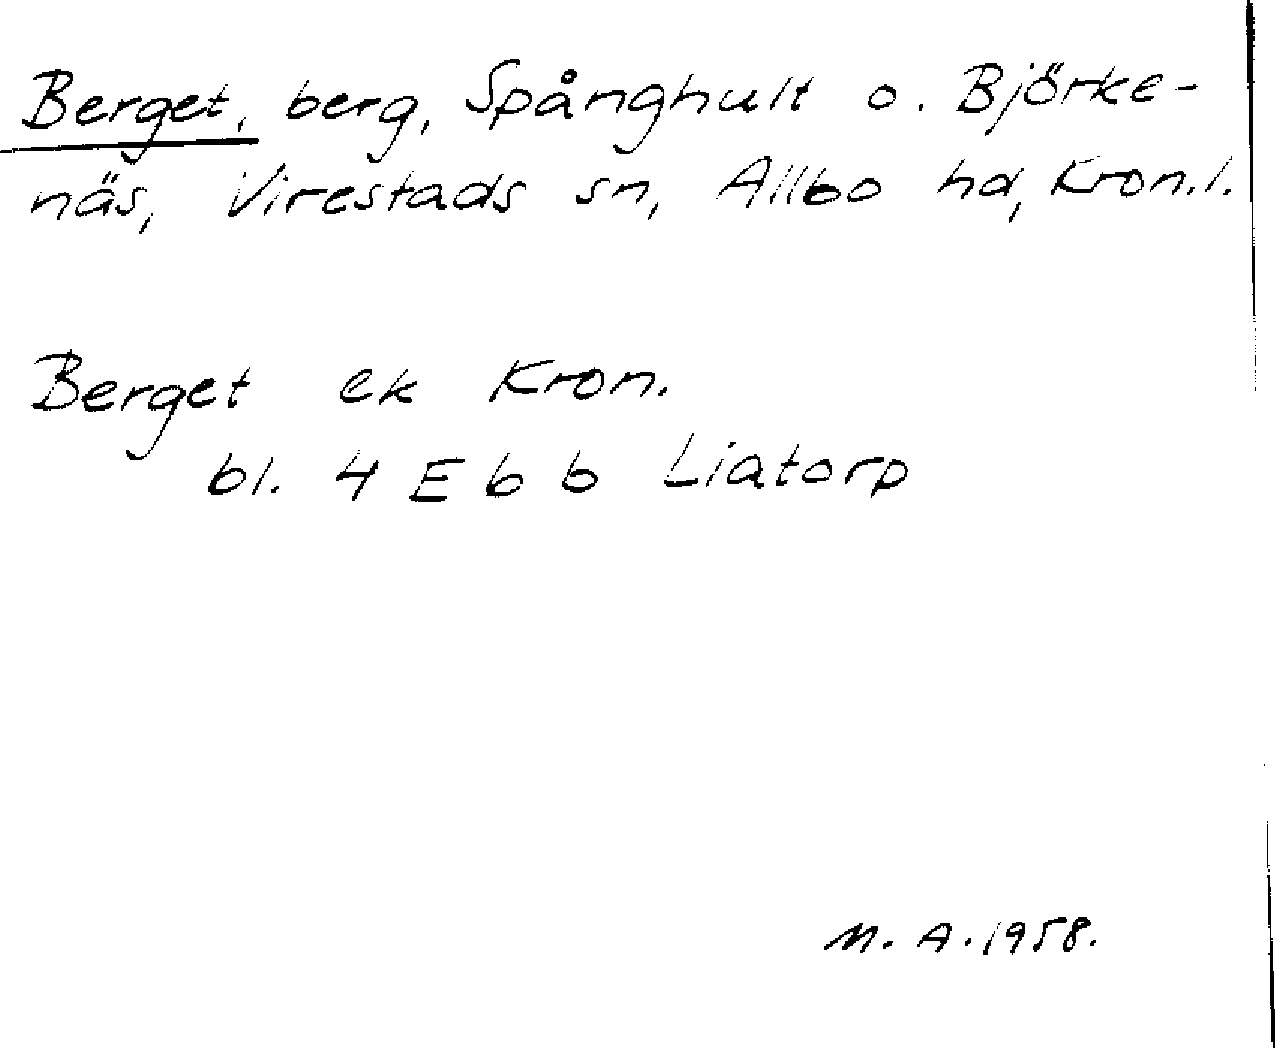 Berget, berg, Spånghult o. Björke-
näs, Virestads sn, Allbo hd, Kron.l.
Berget ek Kron.
bl. 4 E b b Liatorp
M. A. 1958.